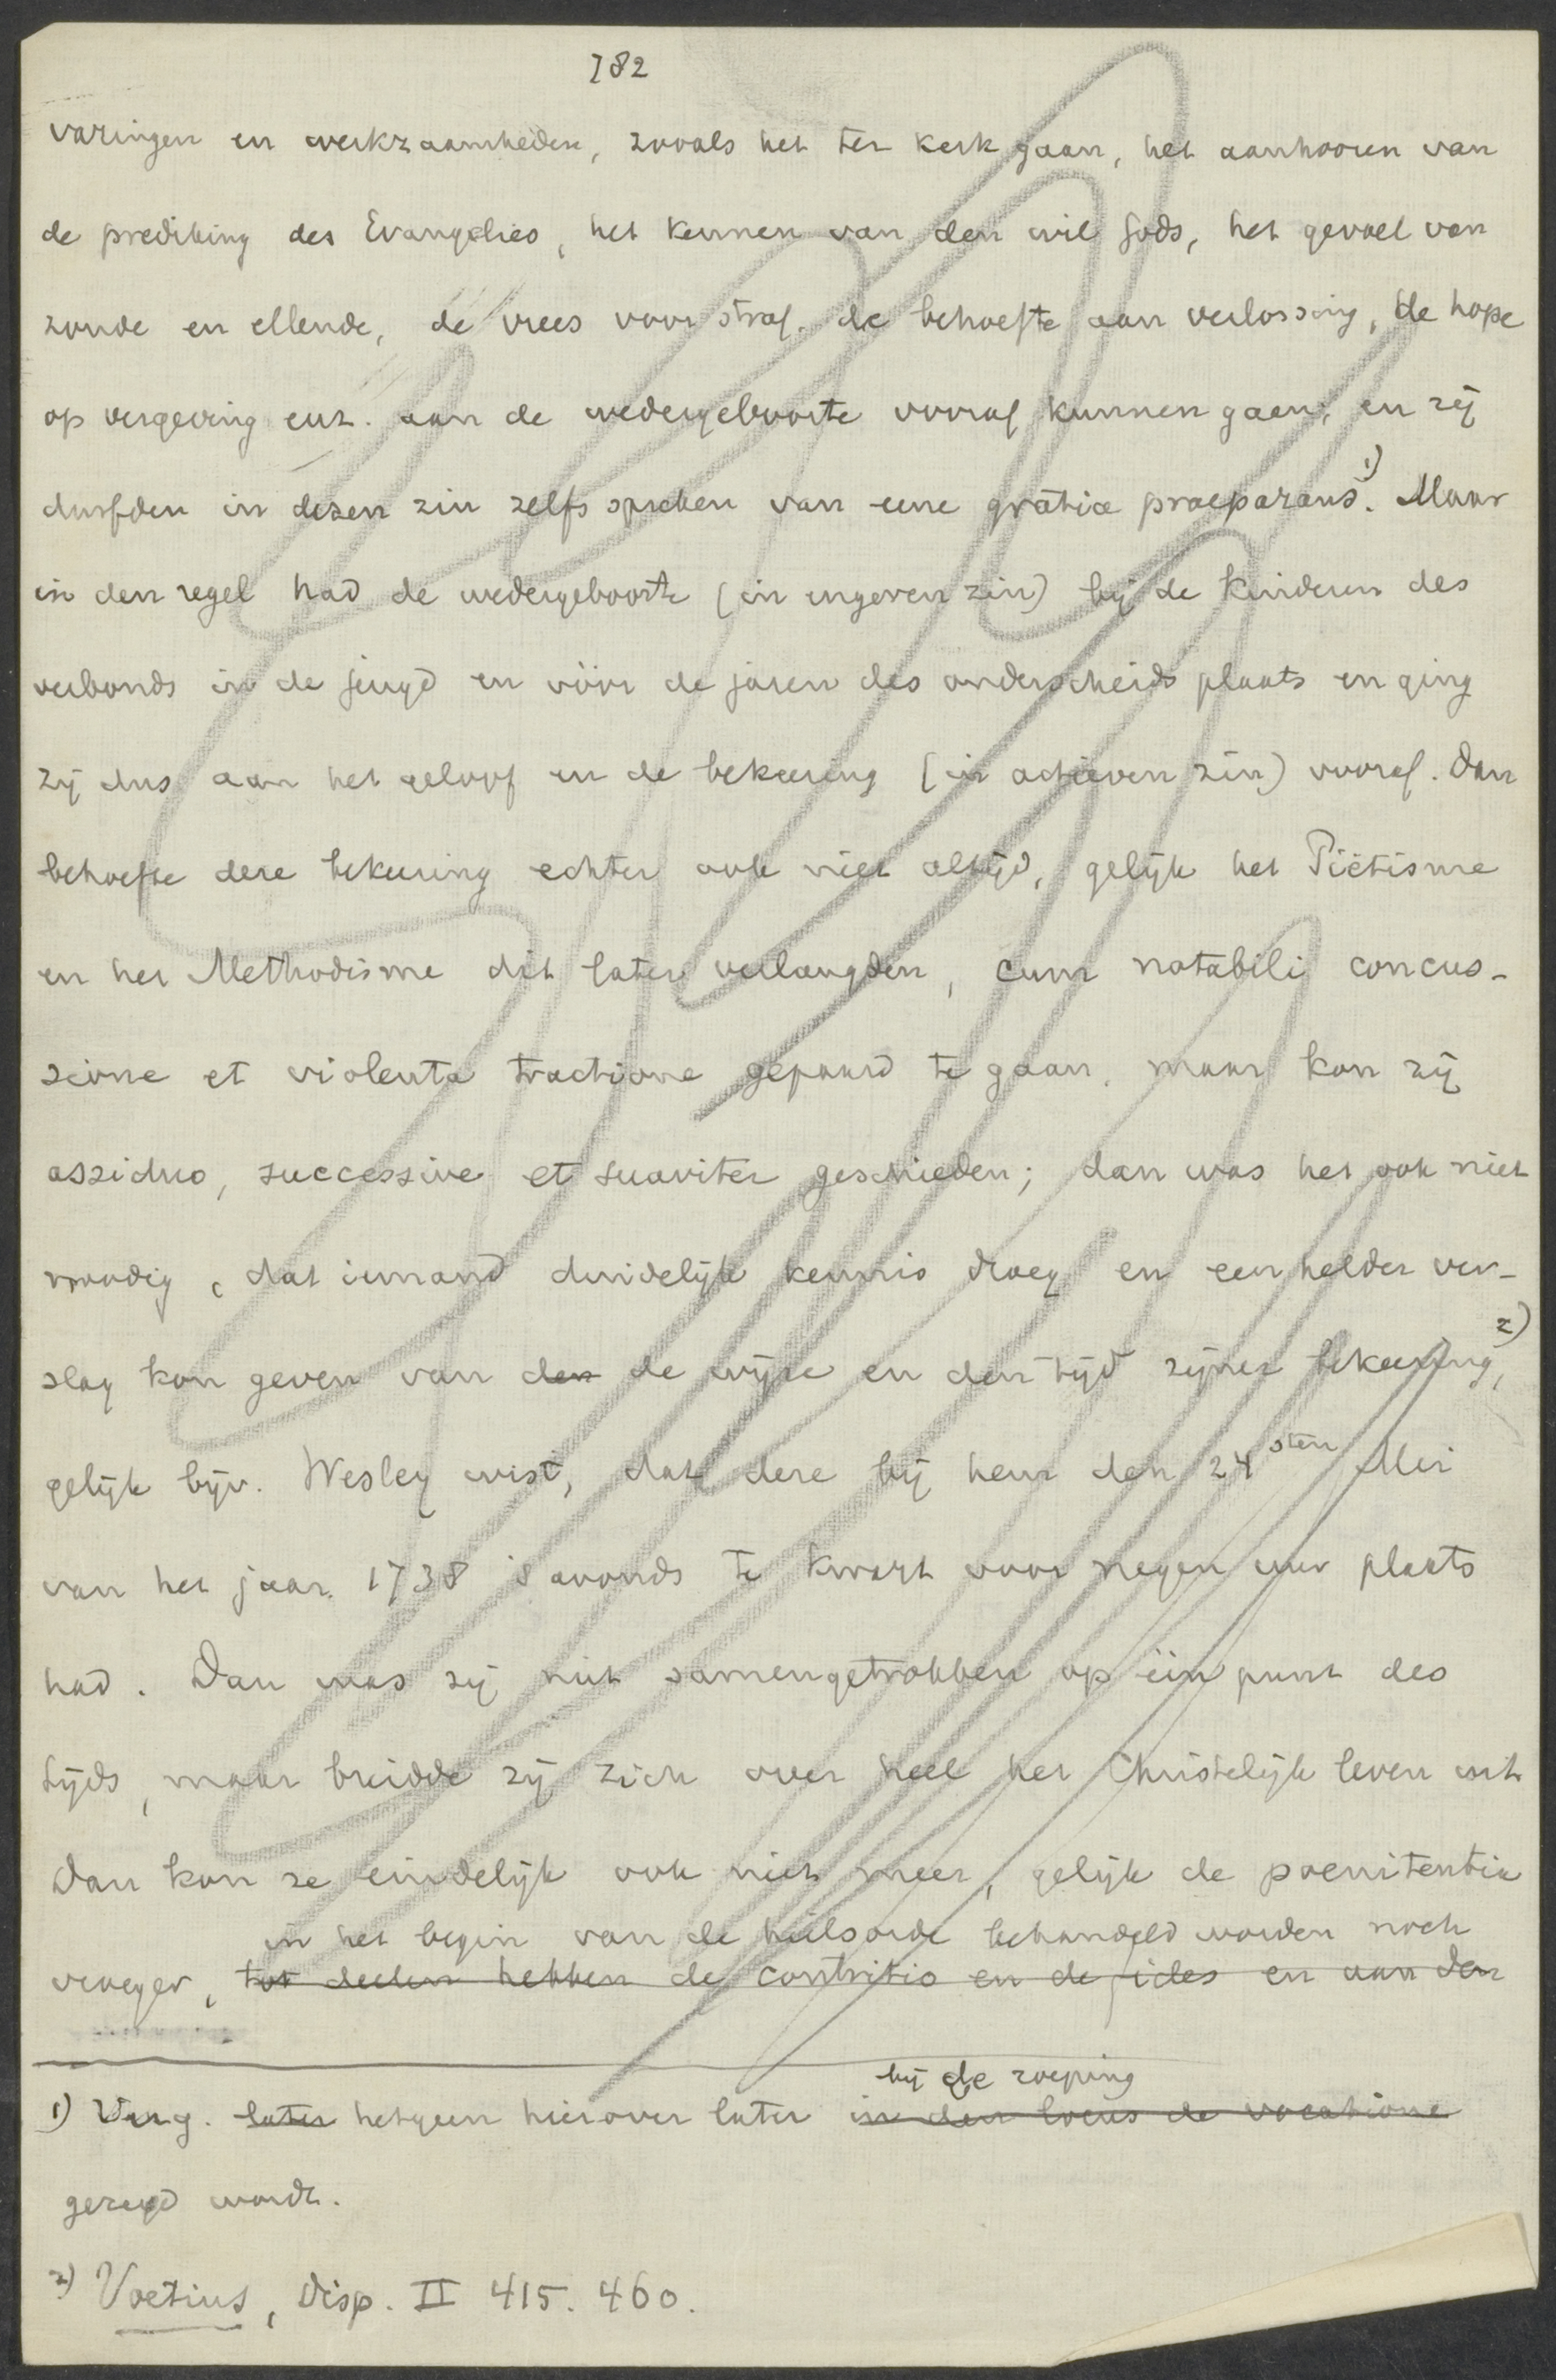 782
varingen en werkzaamheden, zooals het ter kerk gaan, het aanhooren van
de prediking des Evangelies, het kennen van den wil Gods, het gevoel van
zonde en ellende, de vrees voor straf, de behoefte aan verlossing, de hope
op vergeving enz. aan de wedergeboorte vooraf kunnen gaan; en zij
durfden in dezen zin zelfs spreken van eene gratia praeparans 1). Maar
in den regel had de wedergeboorte (in engeren zin) bij de kinderen des
verbonds in de jeugd en vóór de jaren des onderscheids plaats en ging
zij dus aan het geloof en de bekeering (in actieven zin) vooraf. Dan
behoefde deze bekeering echter ook niet altijd, gelijk het Piëtisme
en het Methodisme dit later verlangden, cum notabili concus-
sione et violenta tractione gepaard te gaan, maar kon zij
assiduo, successive et suaviter geschieden; dan was het ook niet
noodig, dat iemand duidelijk kennis droeg en een helder ver-
slag kon geven van den de wijze en den tijd zijner bekeering 2),
gelijk bijv. Wesley wist, dat deze bij hem den 24sten Mei
van het jaar 1738 's avonds te kwart voor negen uur plaats
had. Dan was zij niet samengetrokken op één punt des
tijds, maar breidde zij zich over heel het Christelijk leven uit
Dan kon ze eindelijk ook niet meer, gelijk de poenitentia
in het begin van de heilsorde behandeld worden noch
vroeger, tot deelen hebben de contritio en de fides en aan den
bij de roeping
1) Verg. later hetgeen hierover later in den locus de vocatione
gezegd wordt.
2) Voetius, Disp. II 415. 460.